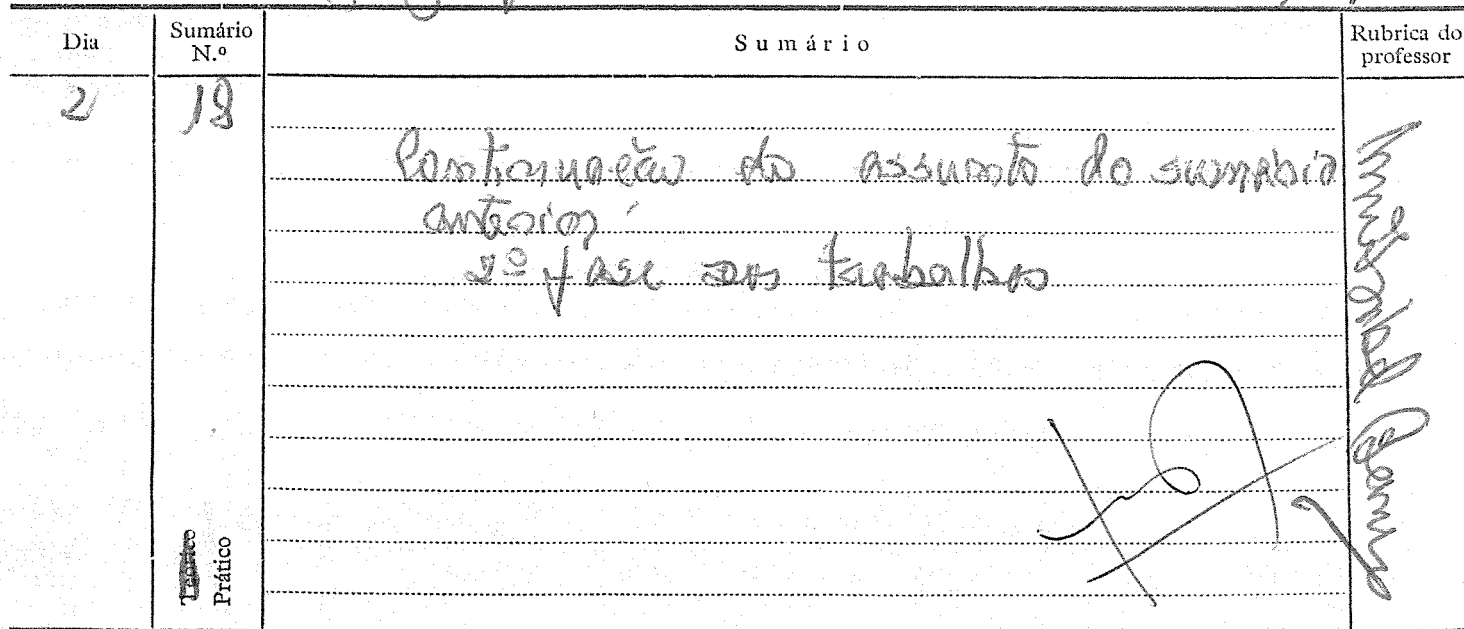 Dia
Sumário N.º
Sumário
Rubrica do professor
2
18
Continuação do assunto do sumário
anterior:
2º fase dos trabalhos
Teórico
Prático